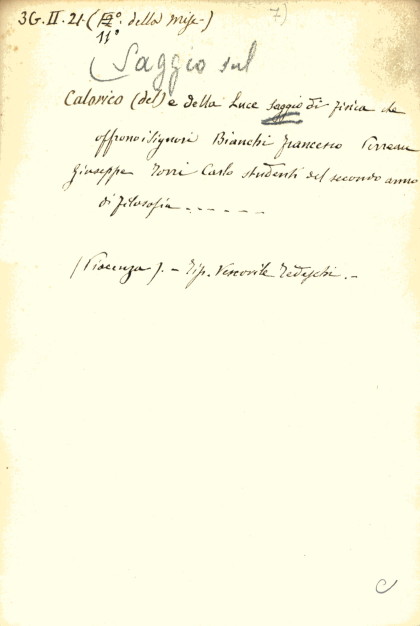 3G.II.21 (IIº. della Misc.)
11º
7)
(Saggio sul
Calorico (del) e della Luce saggio di fisica che
offrono i Signori Bianchi Francesco Perreau
Giuseppe Torri Carlo studenti del secondo anno
di filosofia - - - - - -
(Piacenza). - Tip. Vescovile Tedeschi. -
C